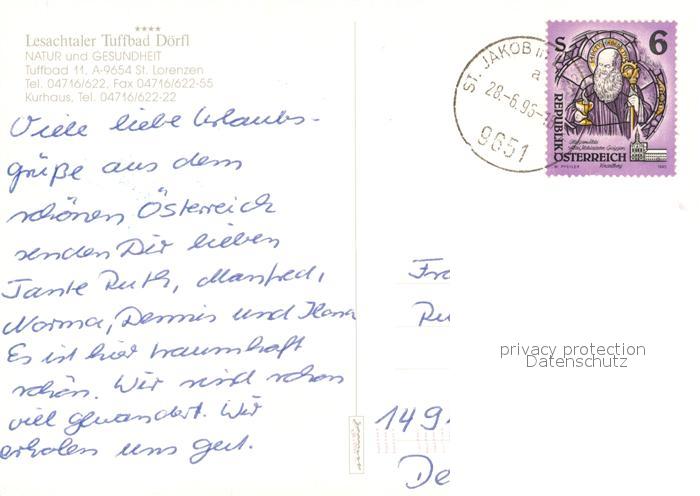 ★★★★
Lesachtaler Tuffbad Dörfl
NATUR und GESUNDHEIT
Tuffbad 11, A-9654 St. Lorenzen
Tel. 04716/622, Fax 04716/622-55
Kurhaus, Tel. 04716/622-22
Viele liebe Urlaubs-
grüße aus dem
schönen Österreich
senden Dir lieben
Tante Ruth, Manfred,
Norma, Dennis und
Es ist hier traumhaft
schön. Wir sind schon
viel gewandert. Wir
erholen uns gut.
ST. JAKOB
28.-6.96
9651
S 6
REPUBLIK
ÖSTERREICH
Fra
Ru
149
De
privacy protection
Datenschutz